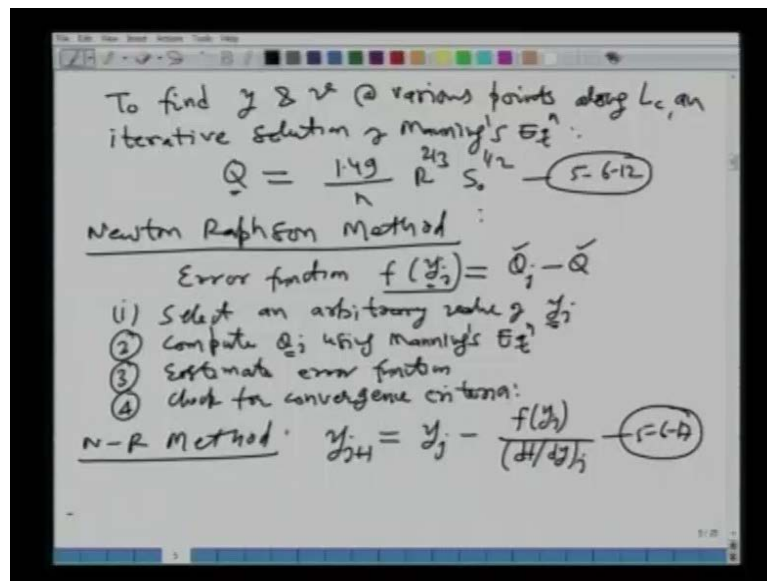 To find y & v @ various points along Lc, an
iterative solution of Manning's Eqn :
Q = 1.49/n R^2/3 S₀^1/2 — 5-6-12
Newton Raphson Method :
Error function f(yj) = Qj - Q
(i) Select an arbitrary value of yj
(2) Compute Qj using Manning's Eqn
(3) Estimate error function
(4) Check for convergence criteria:
N-R Method: yj+1 = yj - f(yj)/(df/dy)j